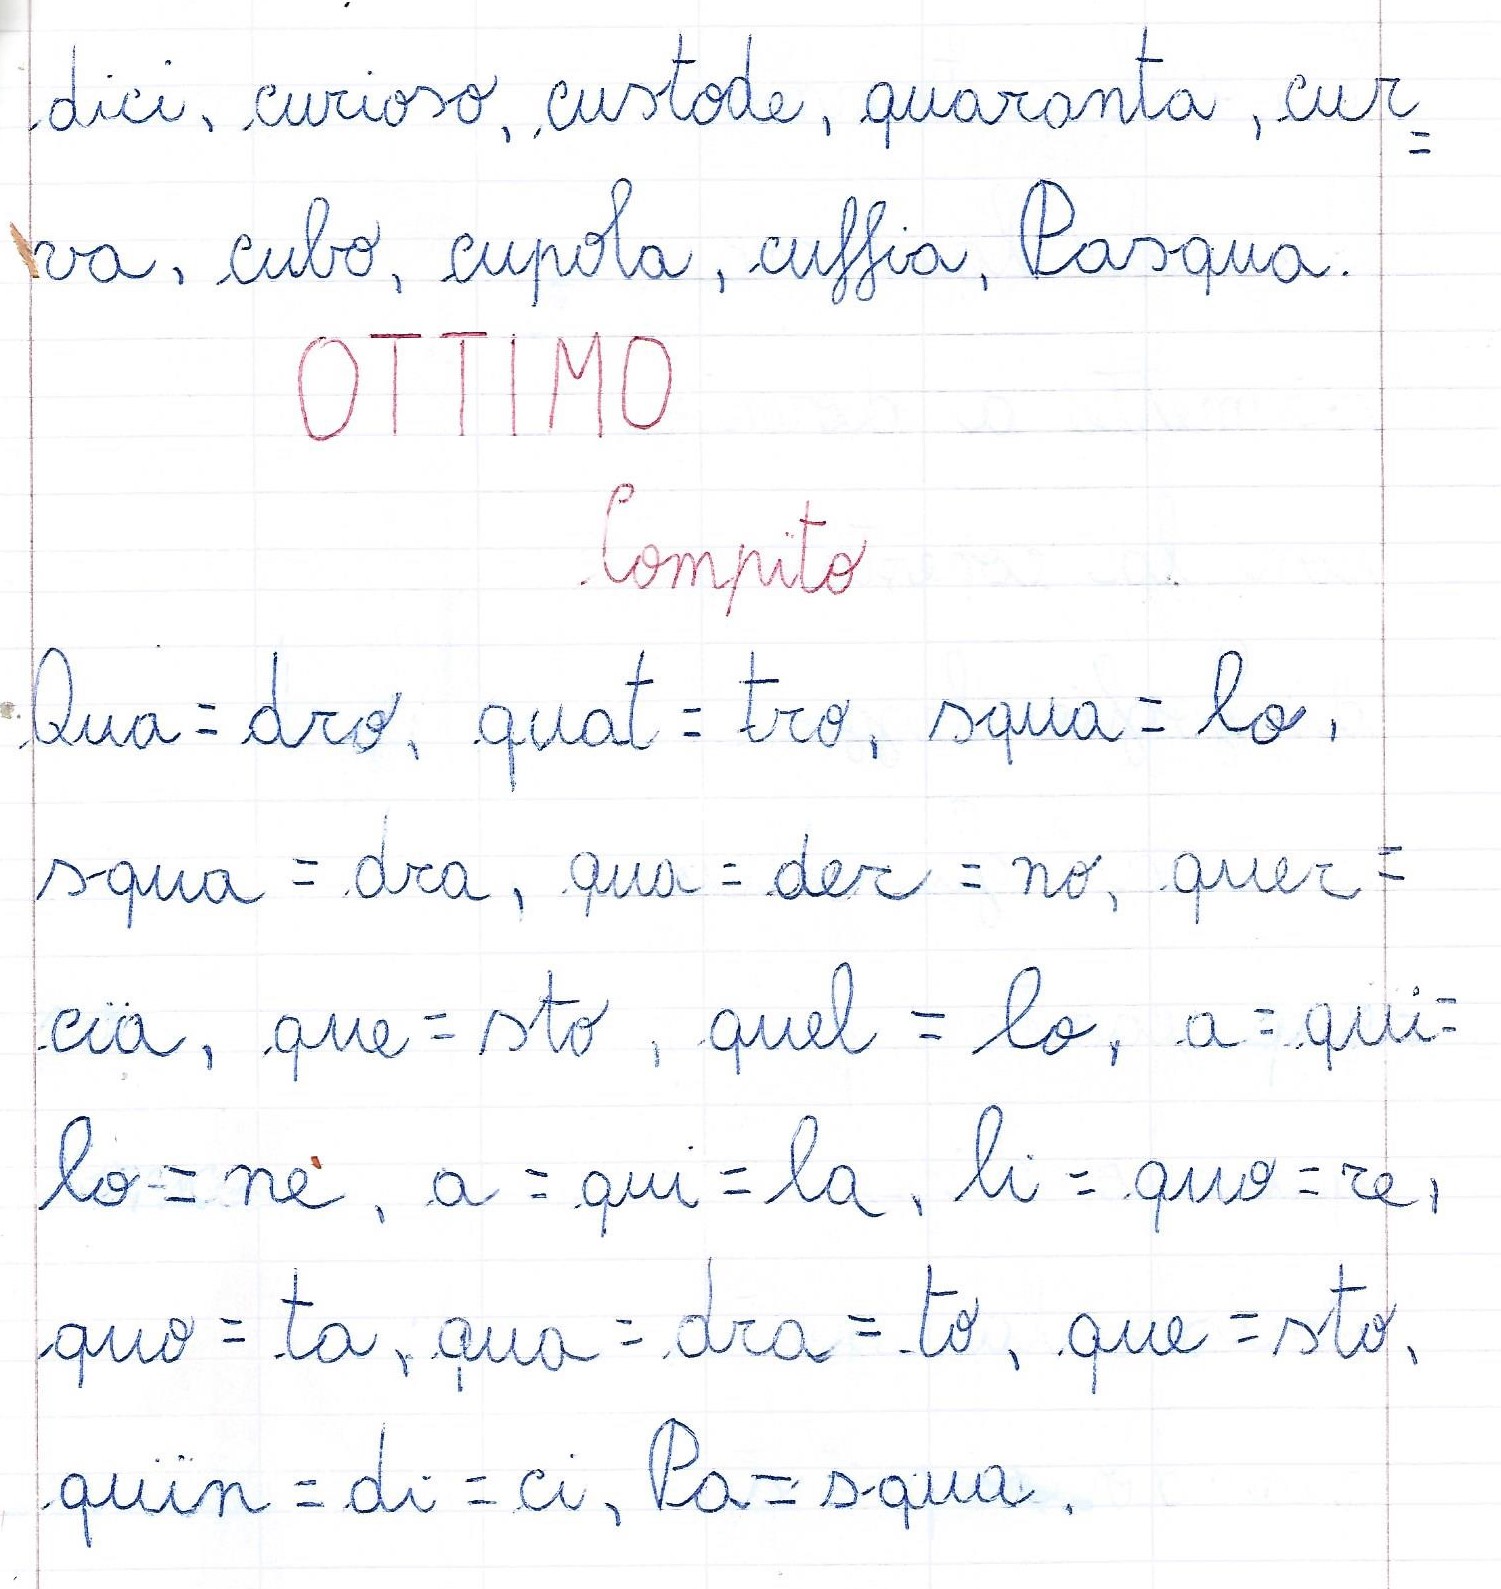 dici, curioso, custode, quaranta, cur=
va, cubo, cupola, cuffia, Pasqua.
OTTIMO
Compito
Qua=dro, quat=tro, squa=lo,
squa=dra, qua=der=no, quer=
cia, que=sto, quel=lo, a=qui=
lo=ne, a=qui=la, li=quo=re,
quo=ta, qua=dra=to, que=sto,
quin=di=ci, Pa=squa.